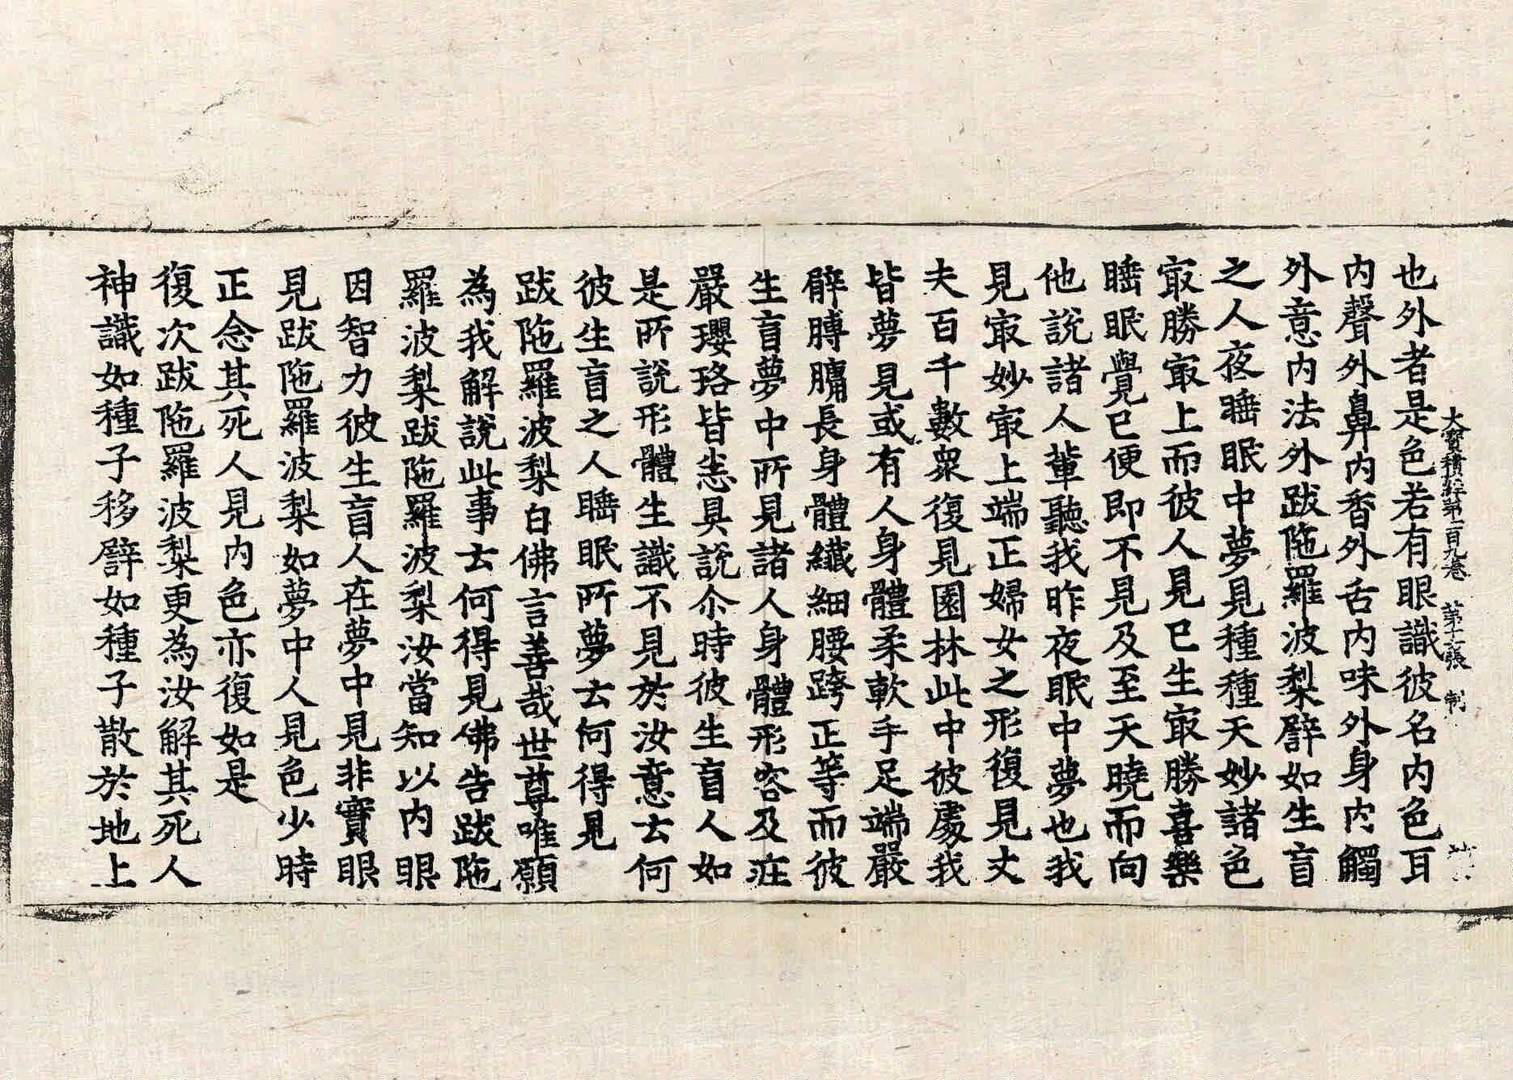 大寶積經第一百九卷 第十張 制
也外者是色若有眼識彼名內色耳
內聲外鼻內香外舌內味外身內觸
外意內法外跋陁羅波梨譬如生盲
之人夜睡眠中夢見種種天妙諸色
㝡勝㝡上而彼人見已生㝡勝喜樂
睡眠覺已便即不見及至天曉而向
他說諸人輩聽我昨夜眠中夢也我
見㝡妙㝡上端正婦女之形復見丈
夫百千數衆復見園林此中彼處我
皆夢見或有人身體柔軟手足端嚴
髀膊𦟛長身體纖細腰跨正等而彼
生盲夢中所見諸人身體形容及莊
嚴瓔珞皆悉具說尒時彼生盲人如
是所說形體生識不見於汝意云何
彼生盲之人睡眠所夢云何得見
跋陁羅波梨白佛言善哉世尊唯願
為我解說此事云何得見佛告跋陁
羅波梨跋陁羅波梨汝當知以內眼
因智力彼生盲人在夢中見非實眼
見跋陁羅波梨如夢中人見色少時
正念其死人見內色亦復如是
復次跋陁羅波梨更為汝解其死人
神識如種子移譬如種子散於地上